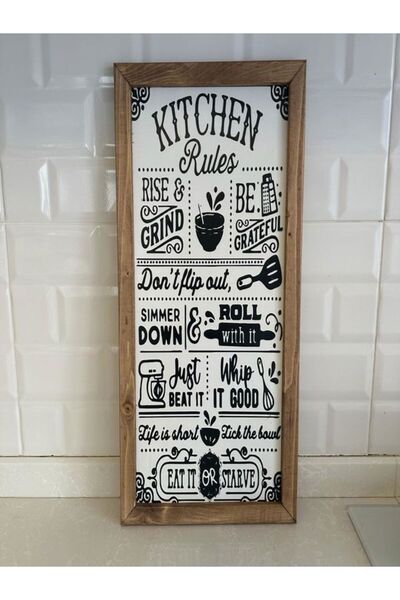 KITCHEN
Rules
RISE &
GRIND
BE
GRATEFUL
Don't flip out,
SIMMER
DOWN
&
ROLL
with it
Just
BEAT IT
Whip
IT GOOD
Life is short Lick the bowl
EAT IT OR STARVE